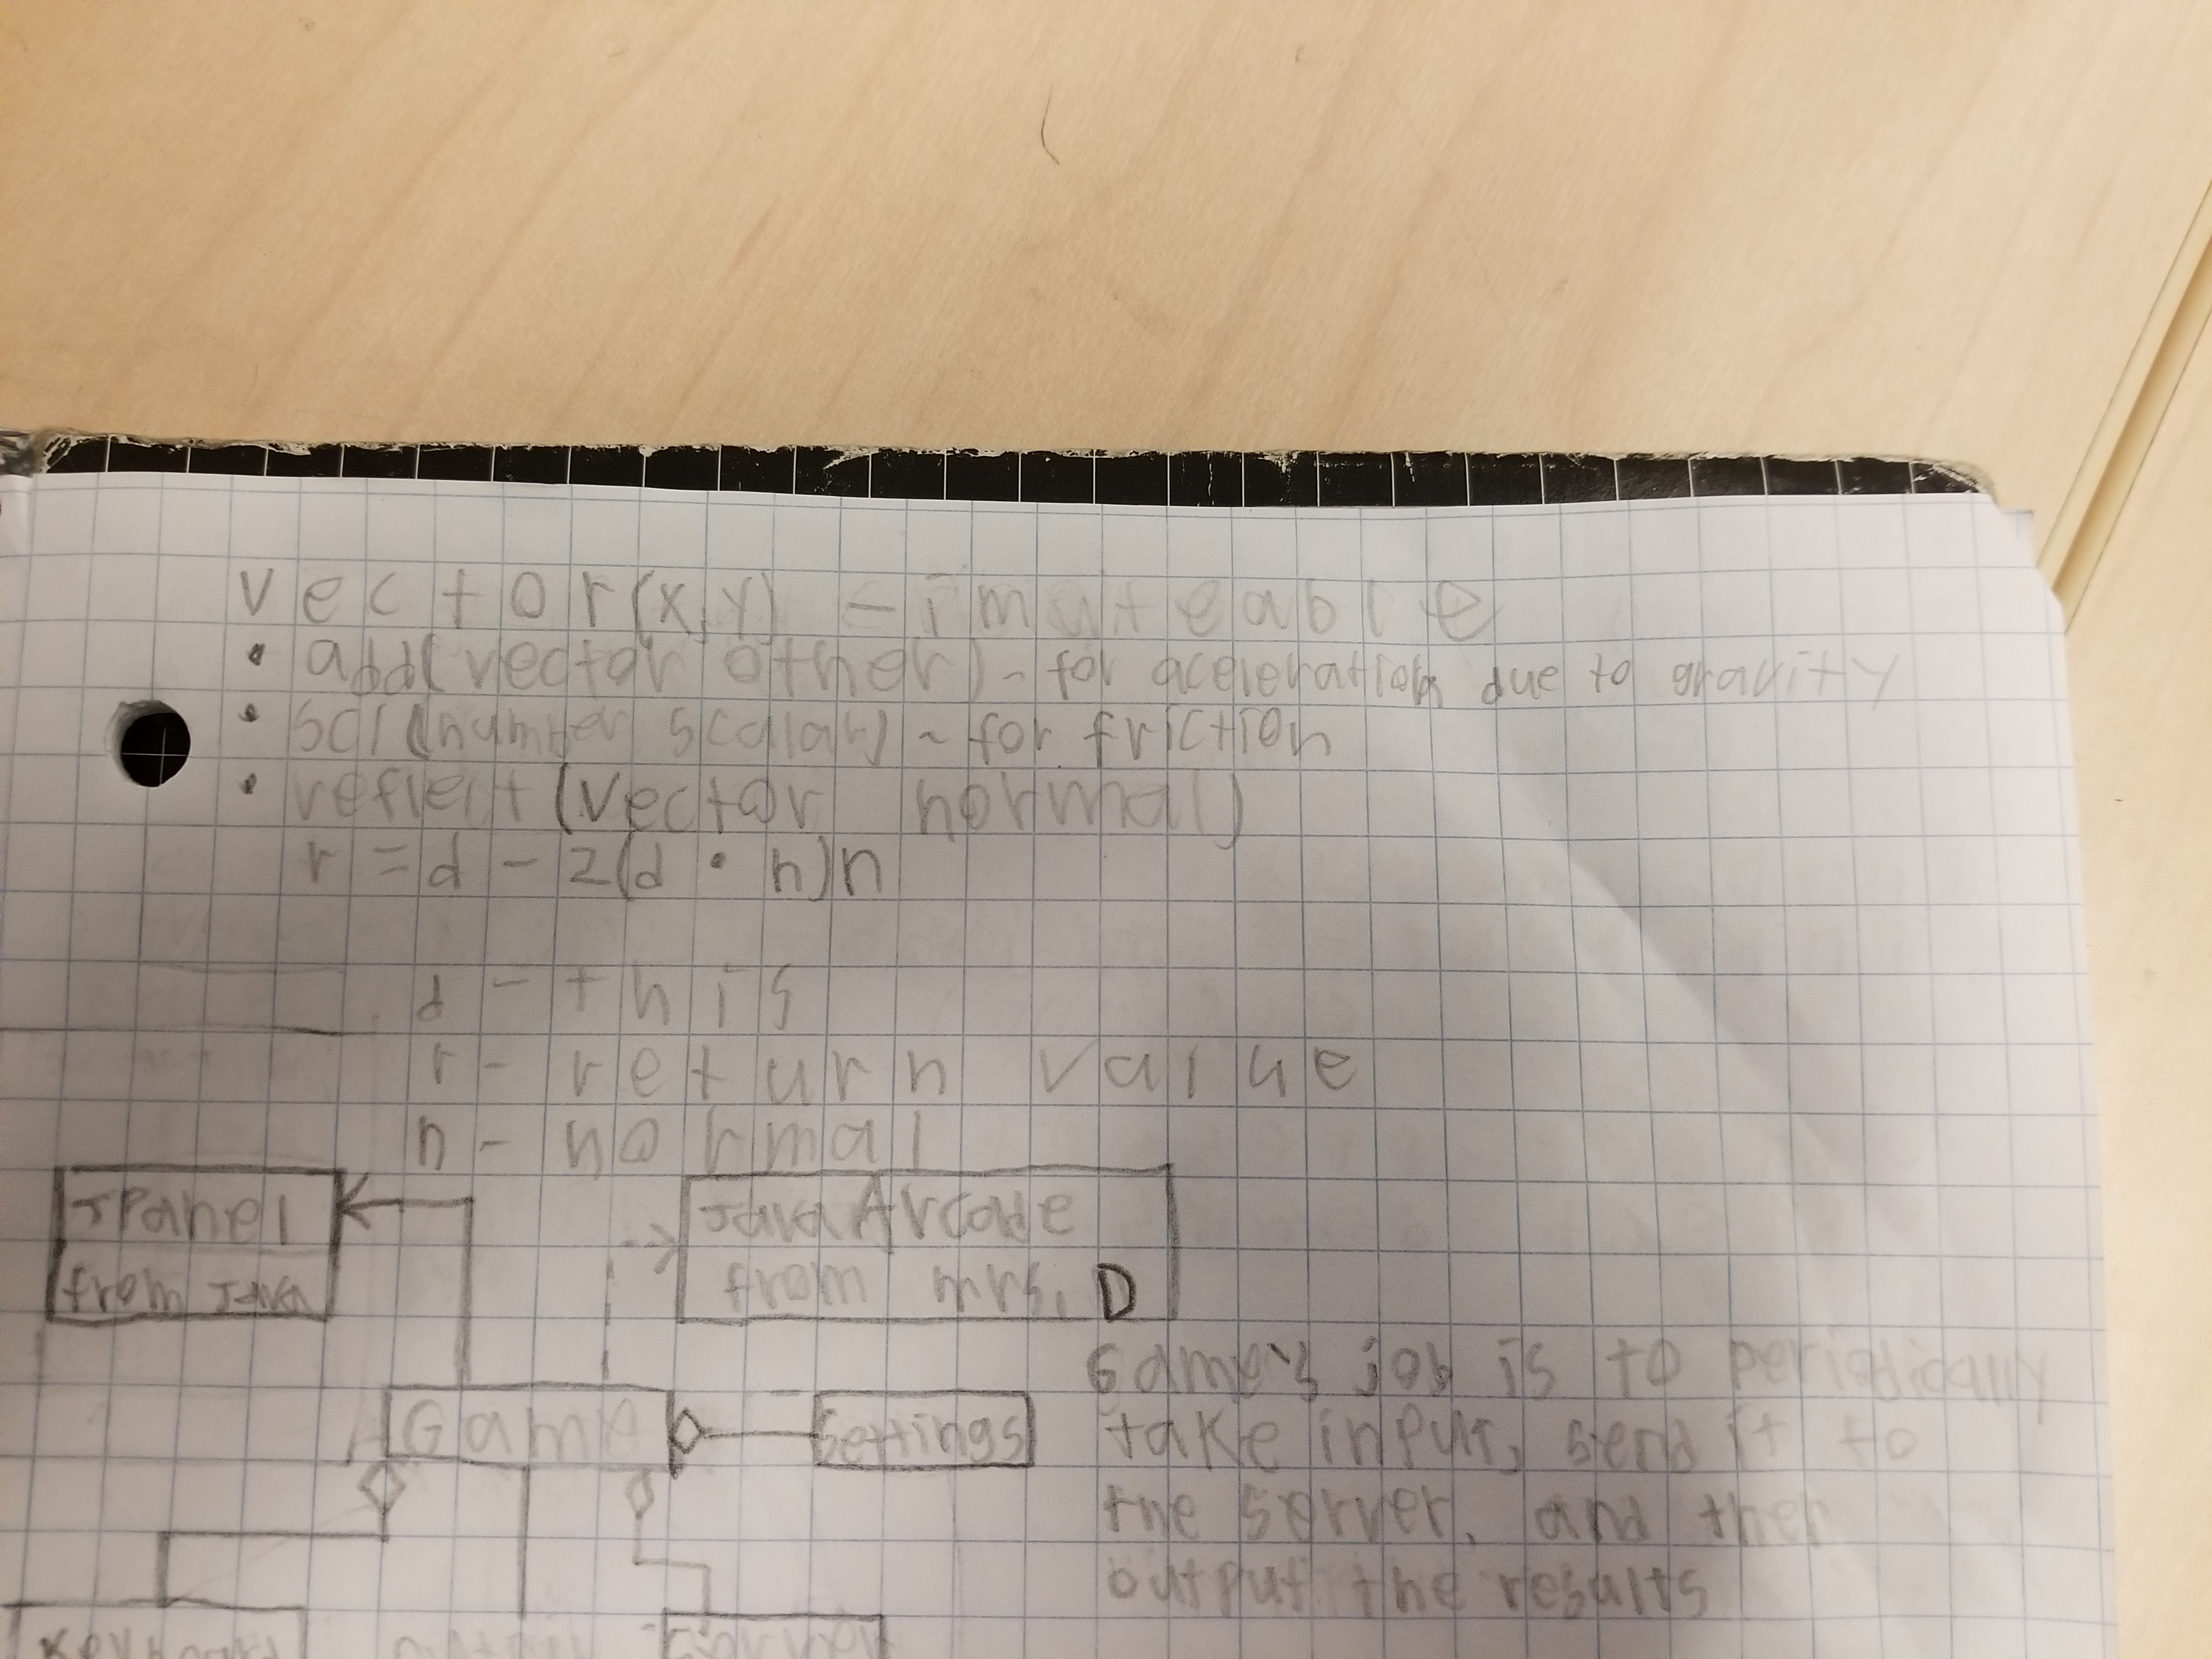 Vector(x,y) - immuteable
• add(vector other) - for aceleration due to gravity
• scl(number scalar) - for friction
• reflect(vector normal)
r = d - 2(d • n)n
d - this
r - return value
n - normal
JPanel
from Java
JavaArcade
from mrs. D
Game
Settings
Game's job is to periodically
take input, send it to
the server, and then
output the results
Server